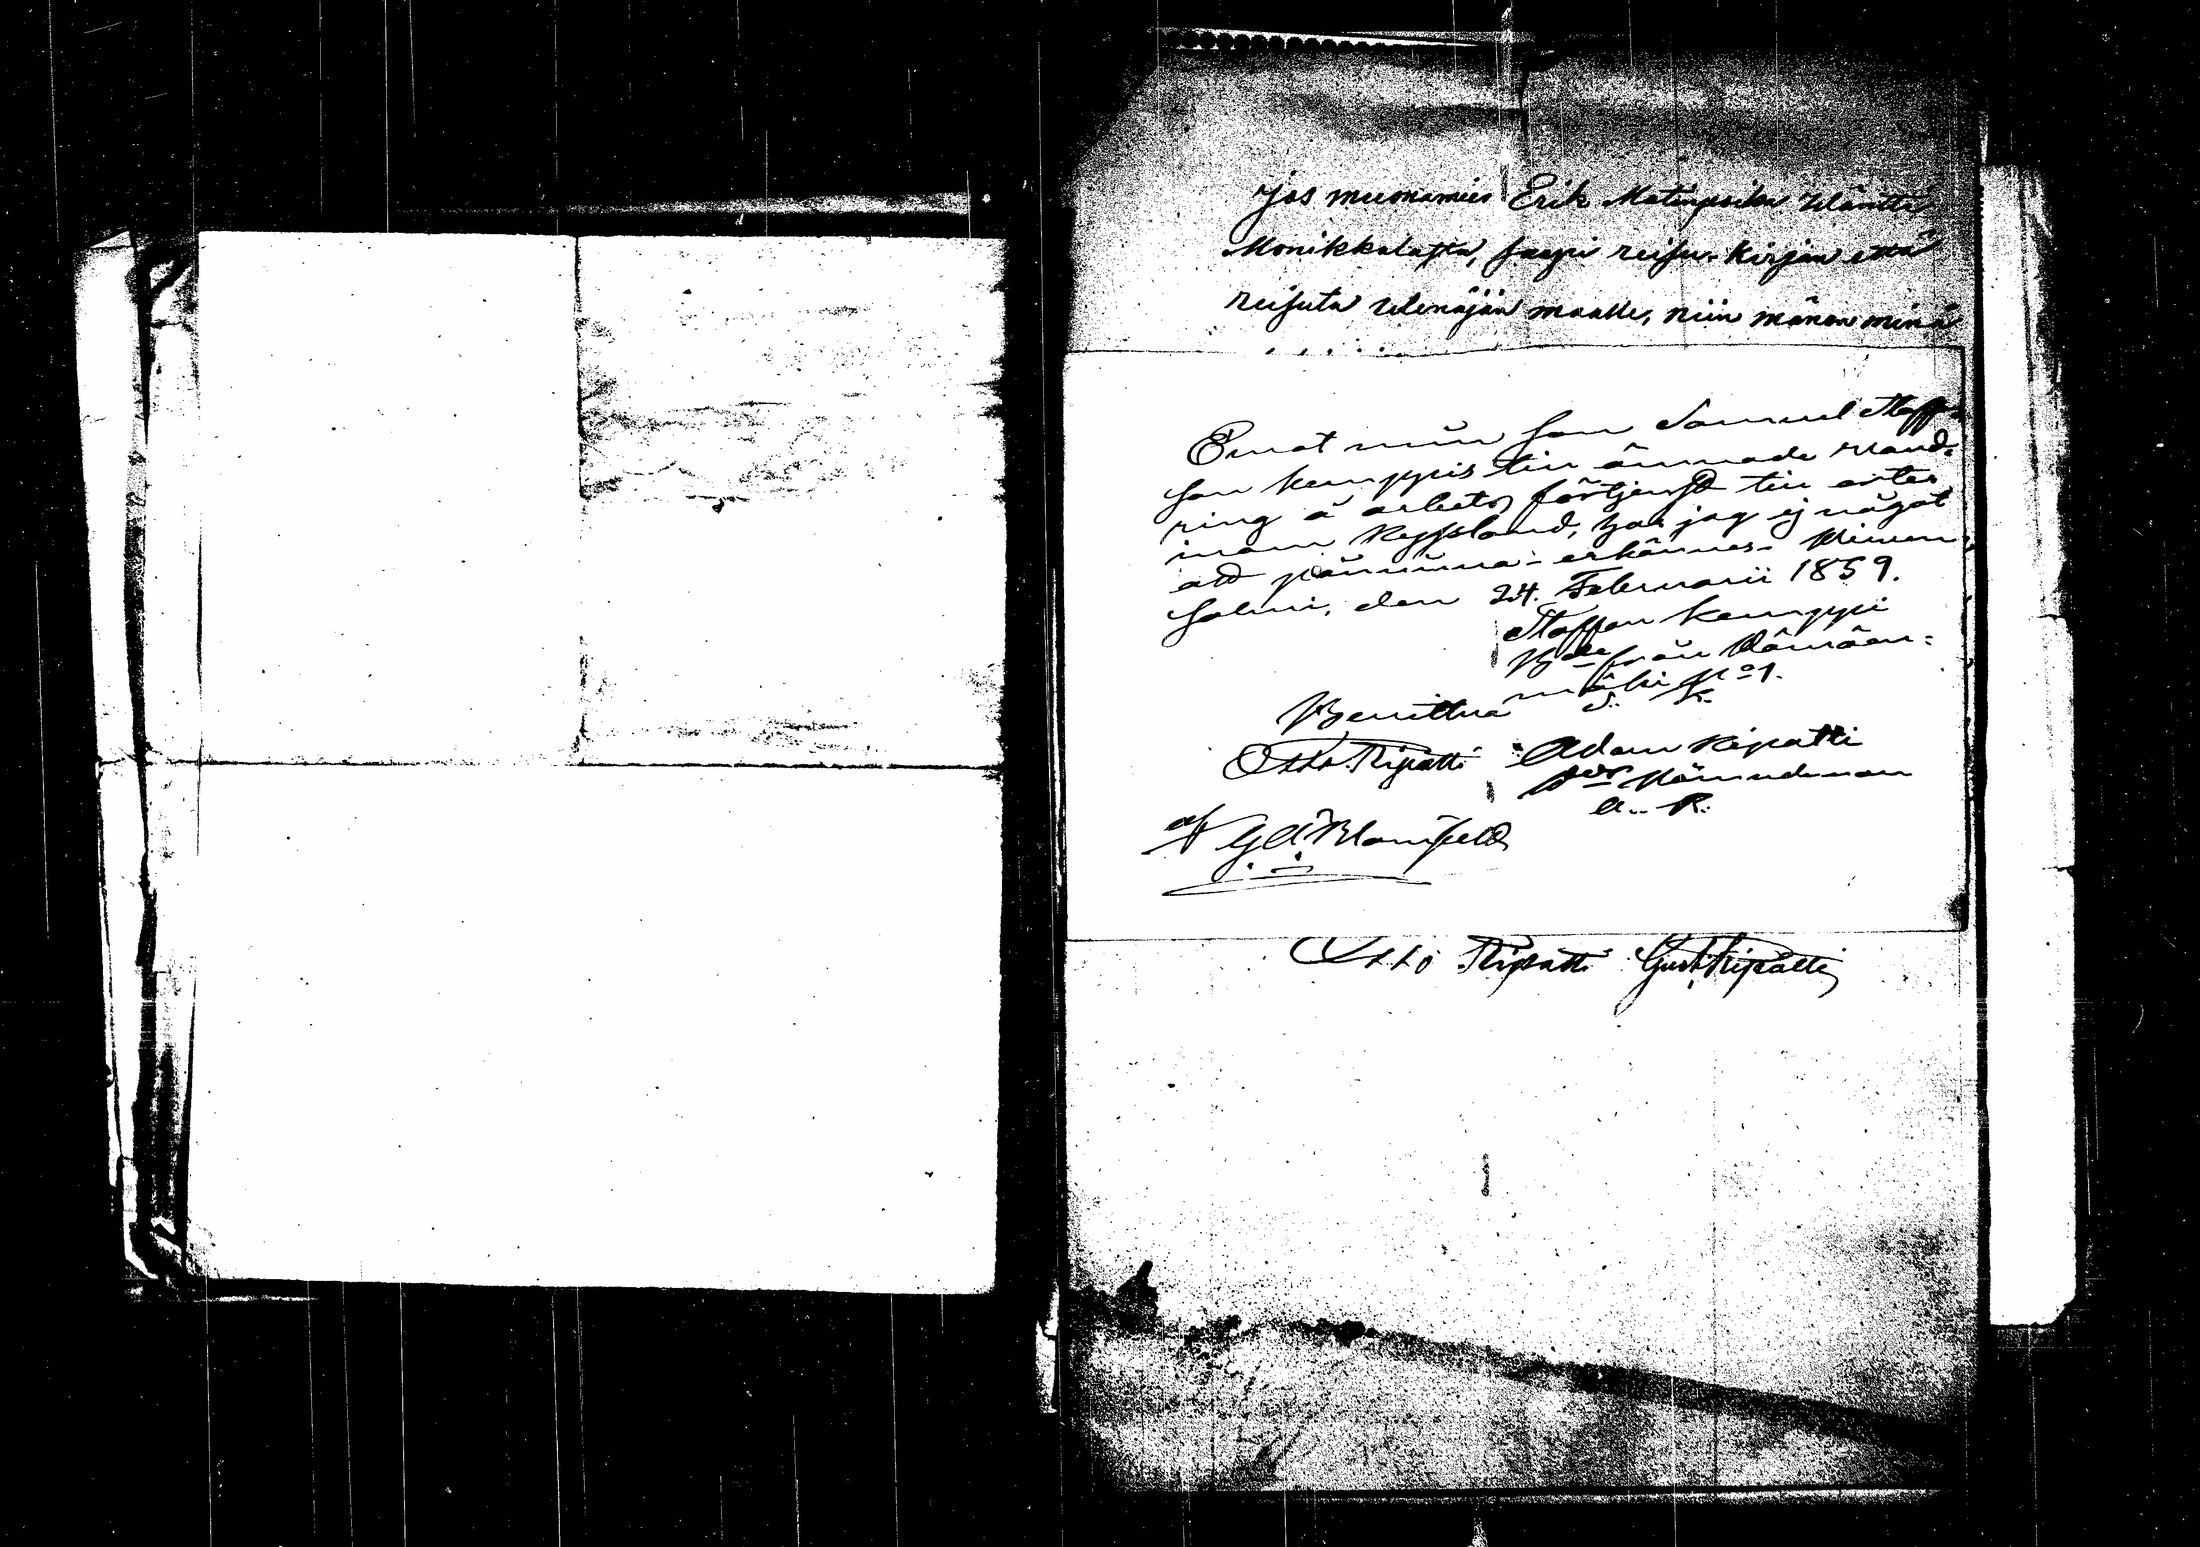 Jos muonamies Erik Matinpoika Wäntti
Monikkalasta, saapi reisu-kirjan että
reisuta Wenäjän maalle, niin mänen minä
Emot min son Samuel Staffans
son Kemppis till ämnade vand-
ring å arbets förtjenst till orter
inom Ryssland, har jag ej något
att påminna - erkännes - Miemen-
salmi, den 24. Februarii 1859.
Staffan Kemppi
Bde från
mäki No 1.
S. K.
Bevittna
Otto Ripatti Adam Ripatti
Nämndeman
A. R.
af G A Blomfeld
Otto Ripatti Gust Ripatti